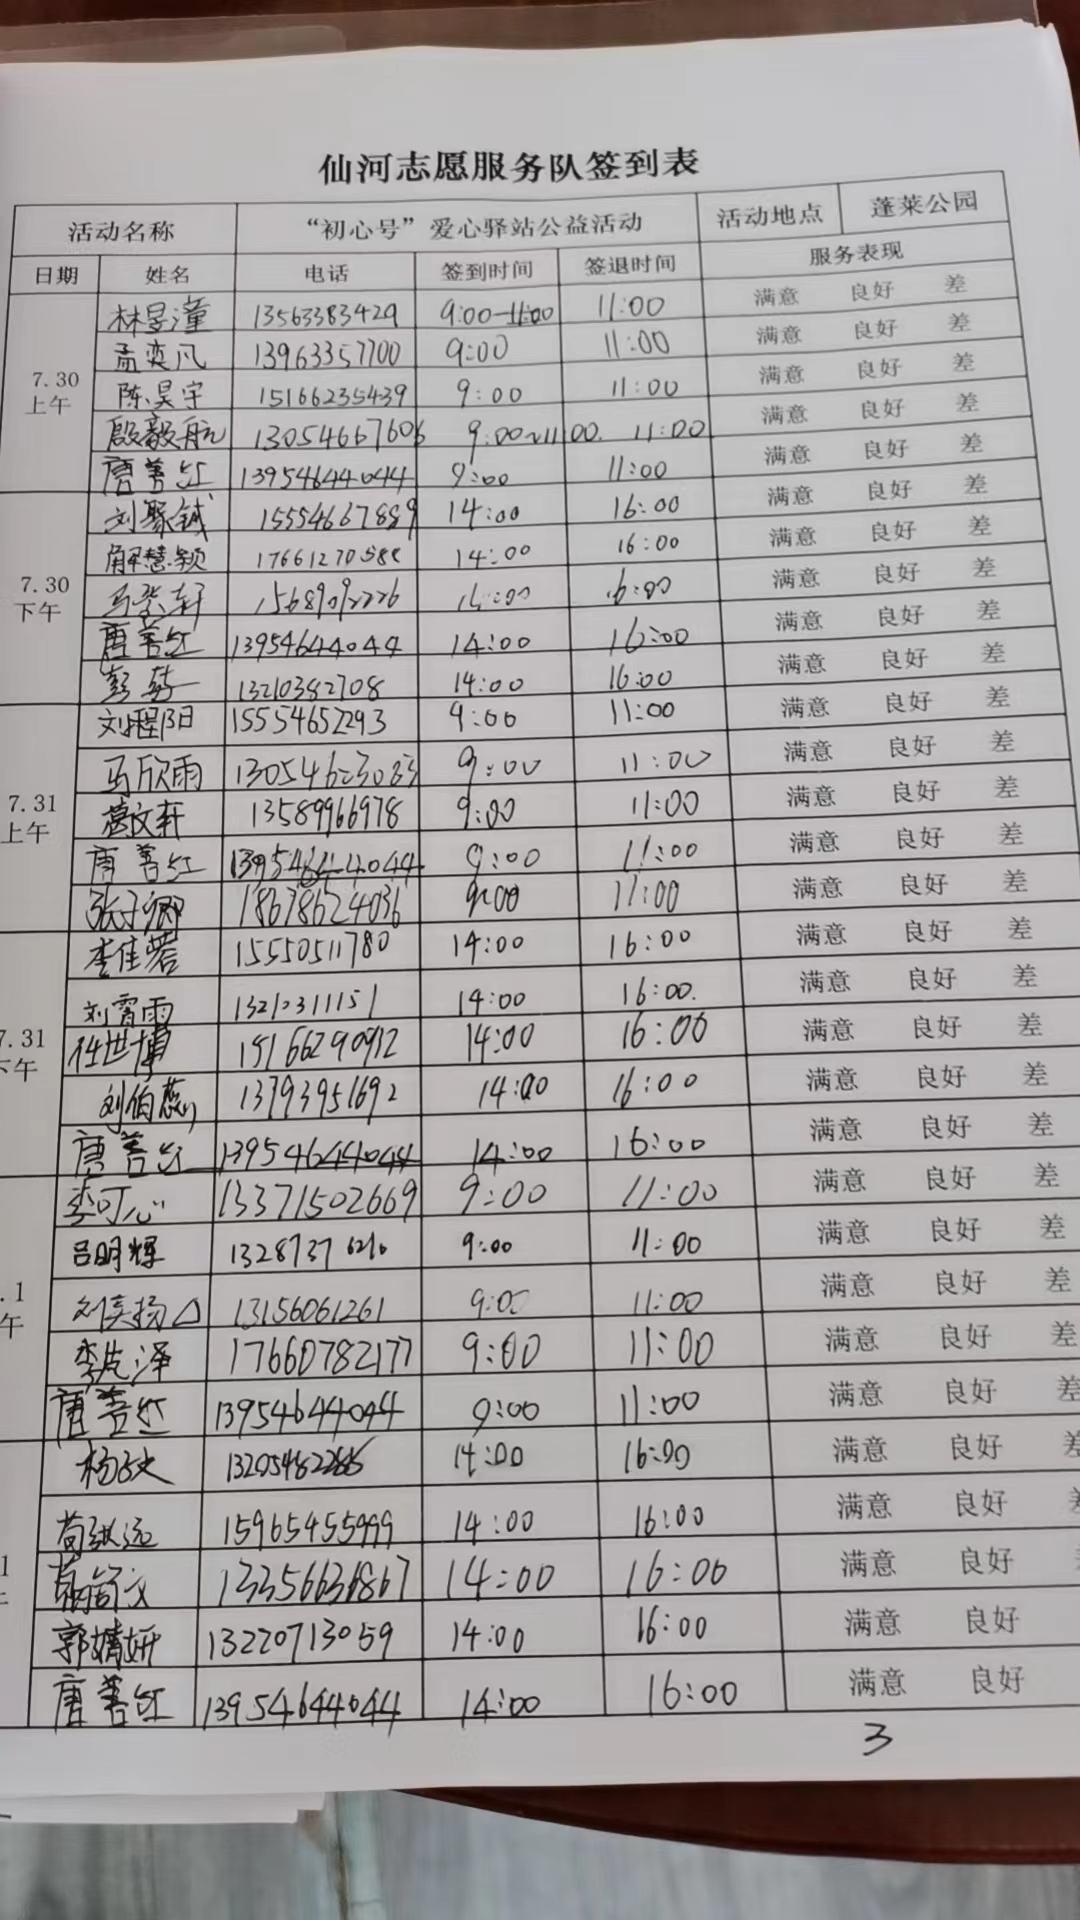 仙河志愿服务队签到表
活动名称 “初心号”爱心驿站公益活动 活动地点 蓬莱公园
日期 姓名 电话 签到时间 签退时间 服务表现
7.30 上午 林昱潼 13563383429 9:00-11:00 11:00 满意 良好 差
孟奕凡 13963357700 9:00 11:00 满意 良好 差
陈昊宇 15166235439 9:00 11:00 满意 良好 差
殷毅航 13054667606 9:00~11:00. 11:00 满意 良好 差
唐善红 13954644044 9:00 11:00 满意 良好 差
7.30 下午 刘聚铖 15554667889 14:00 16:00 满意 良好 差
解慧颖 17661270588 14:00 16:00 满意 良好 差
马 轩 14:00 16:00 满意 良好 差
唐善红 13954644044 14:00 16:00 满意 良好 差
彭 13210382708 14:00 16:00 满意 良好 差
7.31 上午 刘程阳 15554652293 9:00 11:00 满意 良好 差
马欣雨 9:00 11:00 满意 良好 差
葛文轩 13589966978 9:00 11:00 满意 良好 差
唐善红 13954644044 9:00 11:00 满意 良好 差
张子卿 18678624036 9:00 11:00 满意 良好 差
7.31 下午 李佳蓉 15550511780 14:00 16:00 满意 良好 差
刘霄雨 13212311151 14:00 16:00. 满意 良好 差
任世博 15166290912 14:00 16:00 满意 良好 差
刘伯蕊 13793951692 14:00 16:00 满意 良好 差
唐善红 13954644044 14:00 16:00 满意 良好 差
.1 午 李可心 13371502669 9:00 11:00 满意 良好 差
吕明辉 9:00 11:00 满意 良好 差
刘 扬 13156061261 9:00 11:00 满意 良好 差
李 泽 17660782177 9:00 11:00 满意 良好 差
唐善红 13954644044 9:00 11:00 满意 良好 差
1 杨 14:00 16:00 满意 良好 差
苟 远 15965455999 14:00 16:00 满意 良好 差
文 13356631867 14:00 16:00 满意 良好
郭婧妍 13220713059 14:00 16:00 满意 良好
唐善红 13954644044 14:00 16:00 满意 良好
3